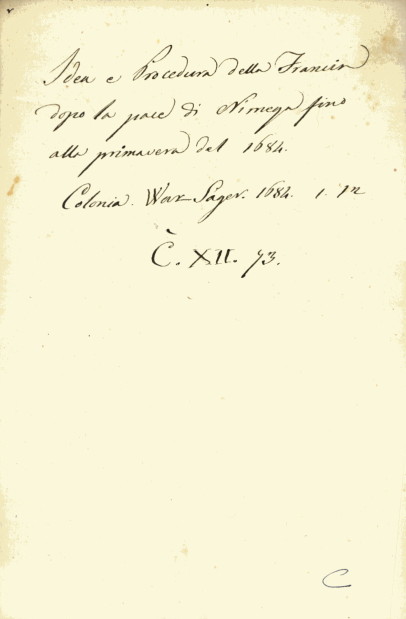 Idea e Procedura della Francia
dopo la pace di Nimega fino
alla primavera del 1684.
Colonia. War-Sager. 1684. 1. 12
C. XII. 73.
C